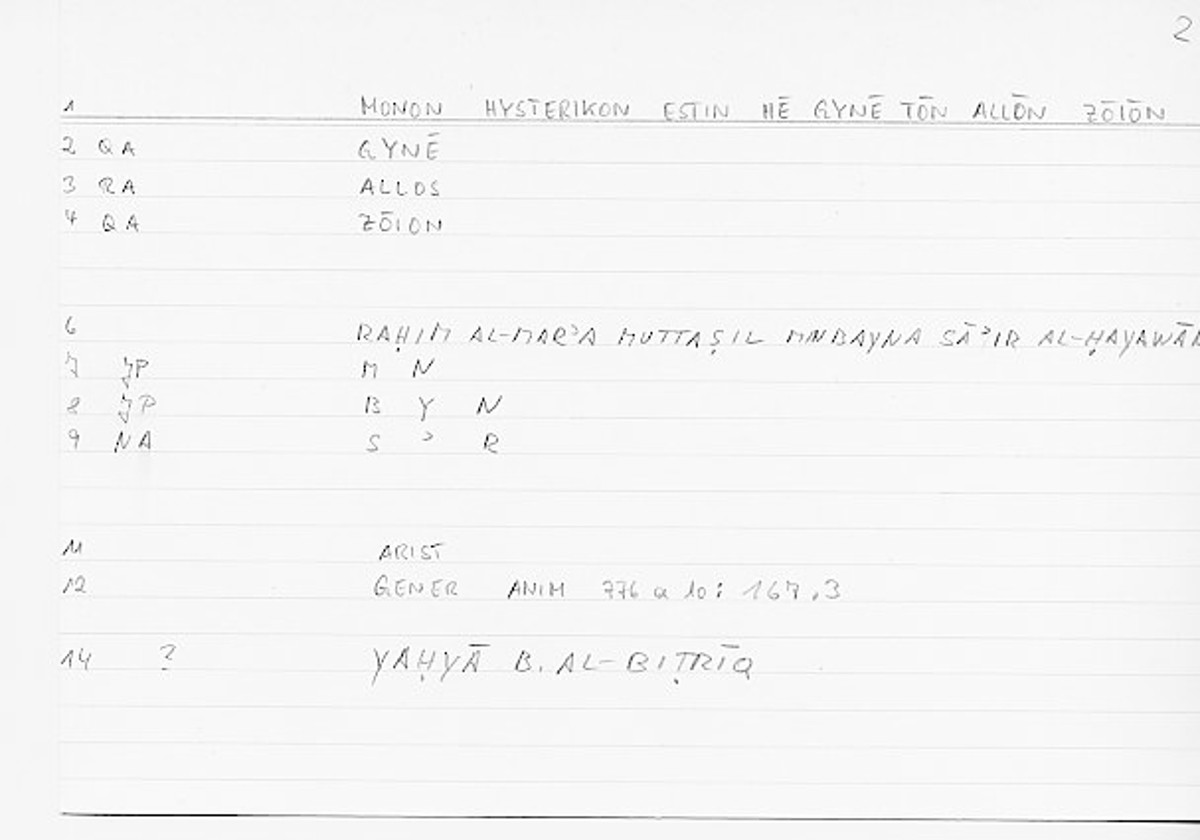 2
1 MONON HYSTERIKON ESTIN HĒ GYNĒ TŌN ALLŌN ZŌIŌN
2 QA GYNĒ
3 RA ALLOS
4 QA ZŌION
6 RAḤIM AL-MARʾA MUTTAṢIL MNBAYNA SĀʾIR AL-ḤAYAWĀN
7 JP M N
8 JP B Y N
9 NA S ʾ R
11 ARIST
12 GENER ANIM 776 a 10: 167,3
14 ? YAḤYĀ B. AL-BIṬRĪQ